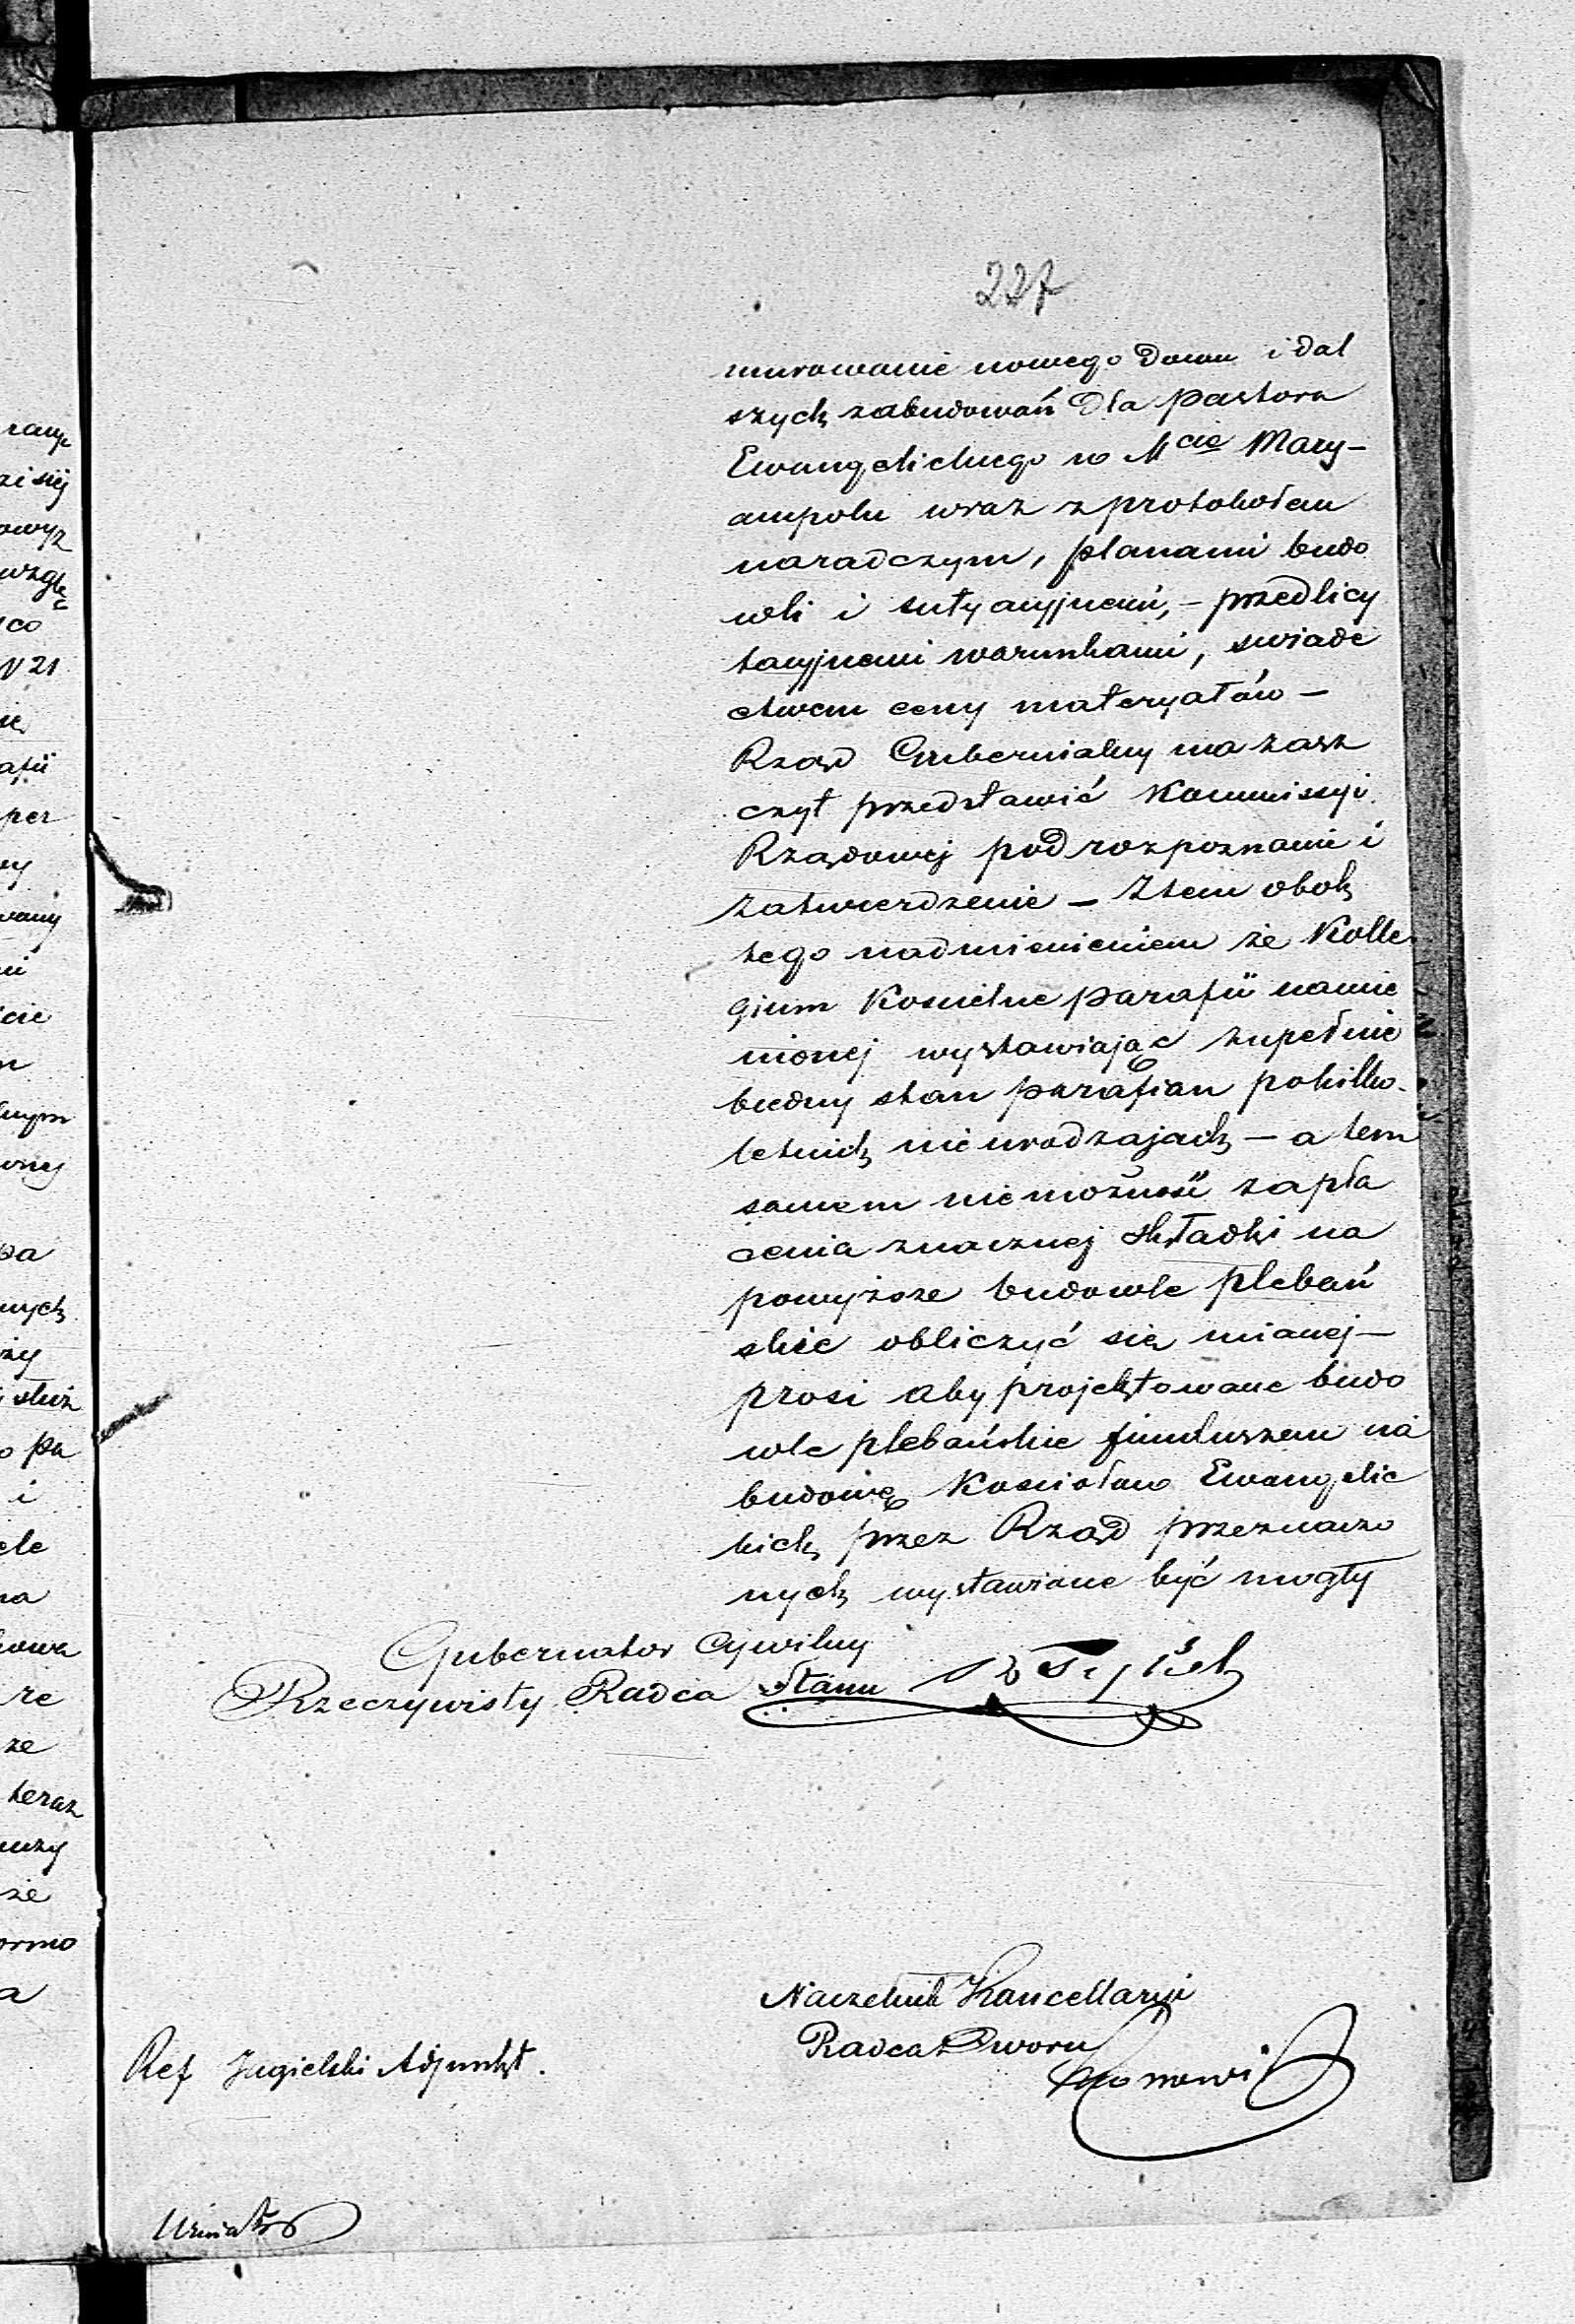 227
murowanie nowego domu i dal
szych zabudowań dla pastora
Ewangelickiego w Mcie Mary-
ampolu wraz z protokołem
naradczym, planami budo
wli i sytuacyjnemi, – przedlicy
tacyjnemi warunkami, swiade
ctwem ceny materyałów –
Rząd Gubernialny ma zasz
czyt przedstawić Kommissyi
Rządowej pod rozpoznanie i
zatwierdzenie – Z tem obok
tego nadmienieniem że Kolle
gium Kościelne parafii namie
nionej wystawiając zupełnie
biedny stan parafian po kilko-
letnich nieurodzajach – a tem
samem niemożność zapła
cenia znacznej składki na
powyższe budowle plebań
skie obliczyć się mianej –
prosi aby projektowane budo
wle plebańskie funduszem na
budowę Kosciołów Ewangelic
kich przez Rząd przeznaczo
nych wystawione być mogły
Gubernator Cywilny
Rzeczywisty Radca Stanu
Naczelnik Kancellaryi
Radca Dworu
Ref Jugielski Adjunkt.